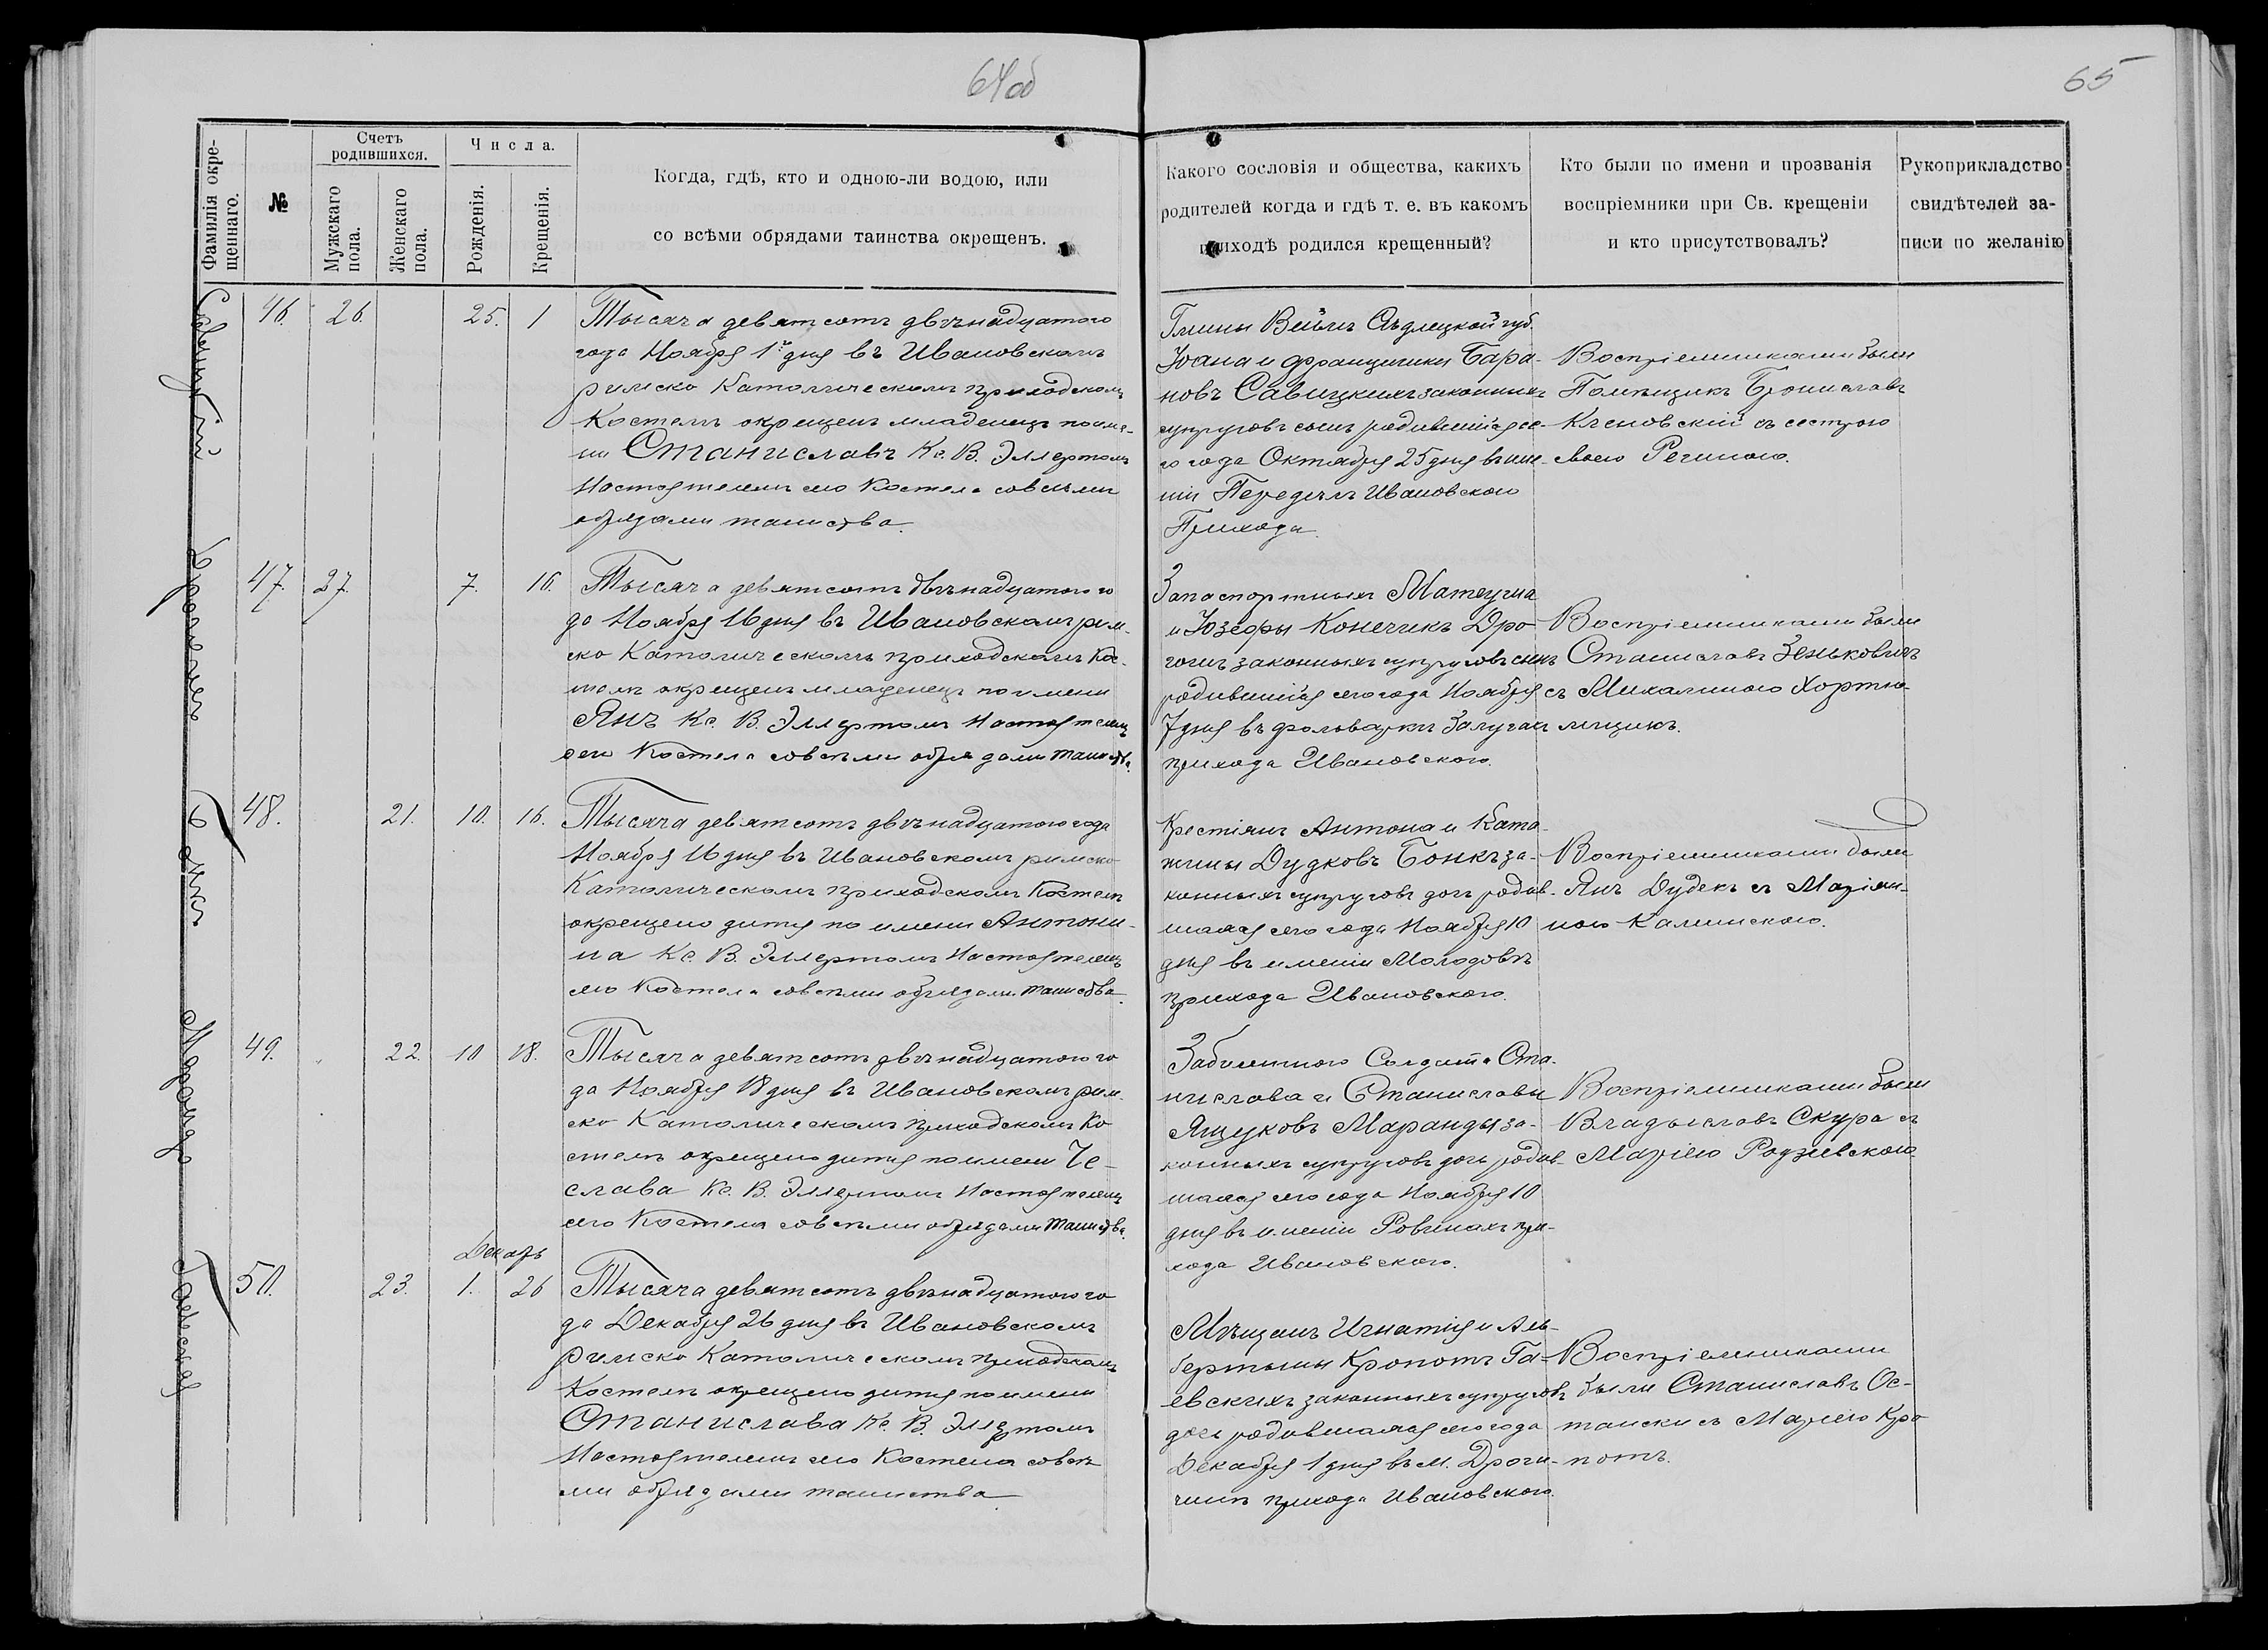 64об
65
Фамилія окре-
щеннаго.
№
Счетъ
родившихся.
Мужскаго
пола.
Женскаго
пола.
Числа.
Рожденія.
Крещенія.
Когда, гдѣ, кто и одною-ли водою, или
со всѣми обрядами таинства окрещенъ.
Какого сословія и общества, какихъ
родителей когда и гдѣ т. е. въ какомъ
приходѣ родился крещенный?
Кто были по имени и прозванія
воспріемники при Св. крещеніи
и кто присутствовалъ?
Рукоприкладство
свидѣтелей за-
писи по желанію
Савицкій
46.
26.
25.
1
Тысяча девятсотъ двѣнадцатого
года Ноября 1го дня въ Ивановскомъ
римско Католическомъ приходскомъ
Костелѣ окрещенъ младенецъ по име-
ни Станиславъ Кс. В. Эллертомъ
Настоятелемъ сего Костела со всѣми
обрядами таинства.
Гмины Вейшъ Сѣдлецкой губ.
Іоана и Францишки Бара-
новъ Савицкихъ законныхъ
супруговъ сынъ родившійся се-
го года Октября 25 дня въ имѣ-
ніи Передѣлъ Ивановского
Прихода.
Воспріемниками были
Помѣщикъ Брониславъ
Кленовскій съ сестрою
своею Региною.
47.
27.
7.
16.
Тысяча девятсотъ двѣнадцатого го
да Ноября 16 дня въ Ивановскомъ рим-
ско Католическомъ приходскомъ Кос-
телѣ окрещенъ младенецъ по имени
Янъ Кс. В. Эллертомъ Настоятелемъ
сего Костела со всѣми обрядами таинства.
Запаспортныхъ Матеуша
и Юзефы Конечикъ Дро
гошъ законныхъ супруговъ сынъ
родившійся сего года Ноября
7 дня въ фольваркѣ Залугахъ
прихода Ивановского.
Воспріемниками были
Станиславъ Зеньковичъ
съ Михалиною Хортно-
мщикъ.
Бонкъ
48.
21.
10.
16.
Тысяча девятсотъ двѣнадцатого года
Ноября 16 дня въ Ивановскомъ римско
Католическомъ приходскомъ Костелѣ
окрещено дитя по имени Антони-
на Кс. В. Эллертомъ Настоятелемъ
сего Костела со всѣми обрядами таинства.
Крестіянъ Антона и Ката-
жины Дудковъ Бонкъ за-
конныхъ супруговъ дочь родив-
шаяся сего года Ноября 10
дня въ имѣніи Молодовѣ
прихода Ивановского.
Воспріемниками были
Янъ Дудекъ съ Маріян-
ною Калинскою.
Маранда
49.
22.
10
18.
Тысяча девятсотъ двѣнадцатого го
да Ноября 18 дня въ Ивановскомъ рим-
ско Католическомъ приходскомъ Ко
стелѣ окрещено дитя по имени Че-
слава Кс. В. Эллертомъ Настоятелемъ
сего Костела со всѣми обрядами таинства.
Забилетного Солдата Ста-
нислава и Станиславы
Ящуковъ Маранды за-
конныхъ супруговъ дочь родив-
шаяся сего года Ноября 10
дня въ имѣніи Ровинахъ при-
хода Ивановского.
Воспріемниками были
Владыславъ Скура съ
Маріею Родзевскою
Гаевская
Декабрь
50.
23.
1.
26
Тысяча девятсотъ двѣнадцатого го
да Декабря 26 дня въ Ивановскомъ
римско Католическомъ приходскомъ
Костелѣ окрещено дитя по имени
Станислава Кс. В. Эллертомъ
Настоятелемъ сего Костела со всѣ
ми обрядами таинства
Мѣщанъ Игнатія и Аль-
бертыны Кропотъ Га-
евскихъ законныхъ супруговъ
дочь родившаяся сего года
Декабря 1 дня въ м. Дроги-
чинѣ прихода Ивановского.
Воспріемниками
были Станиславъ Ос-
таски съ Маріею Кро
потъ.